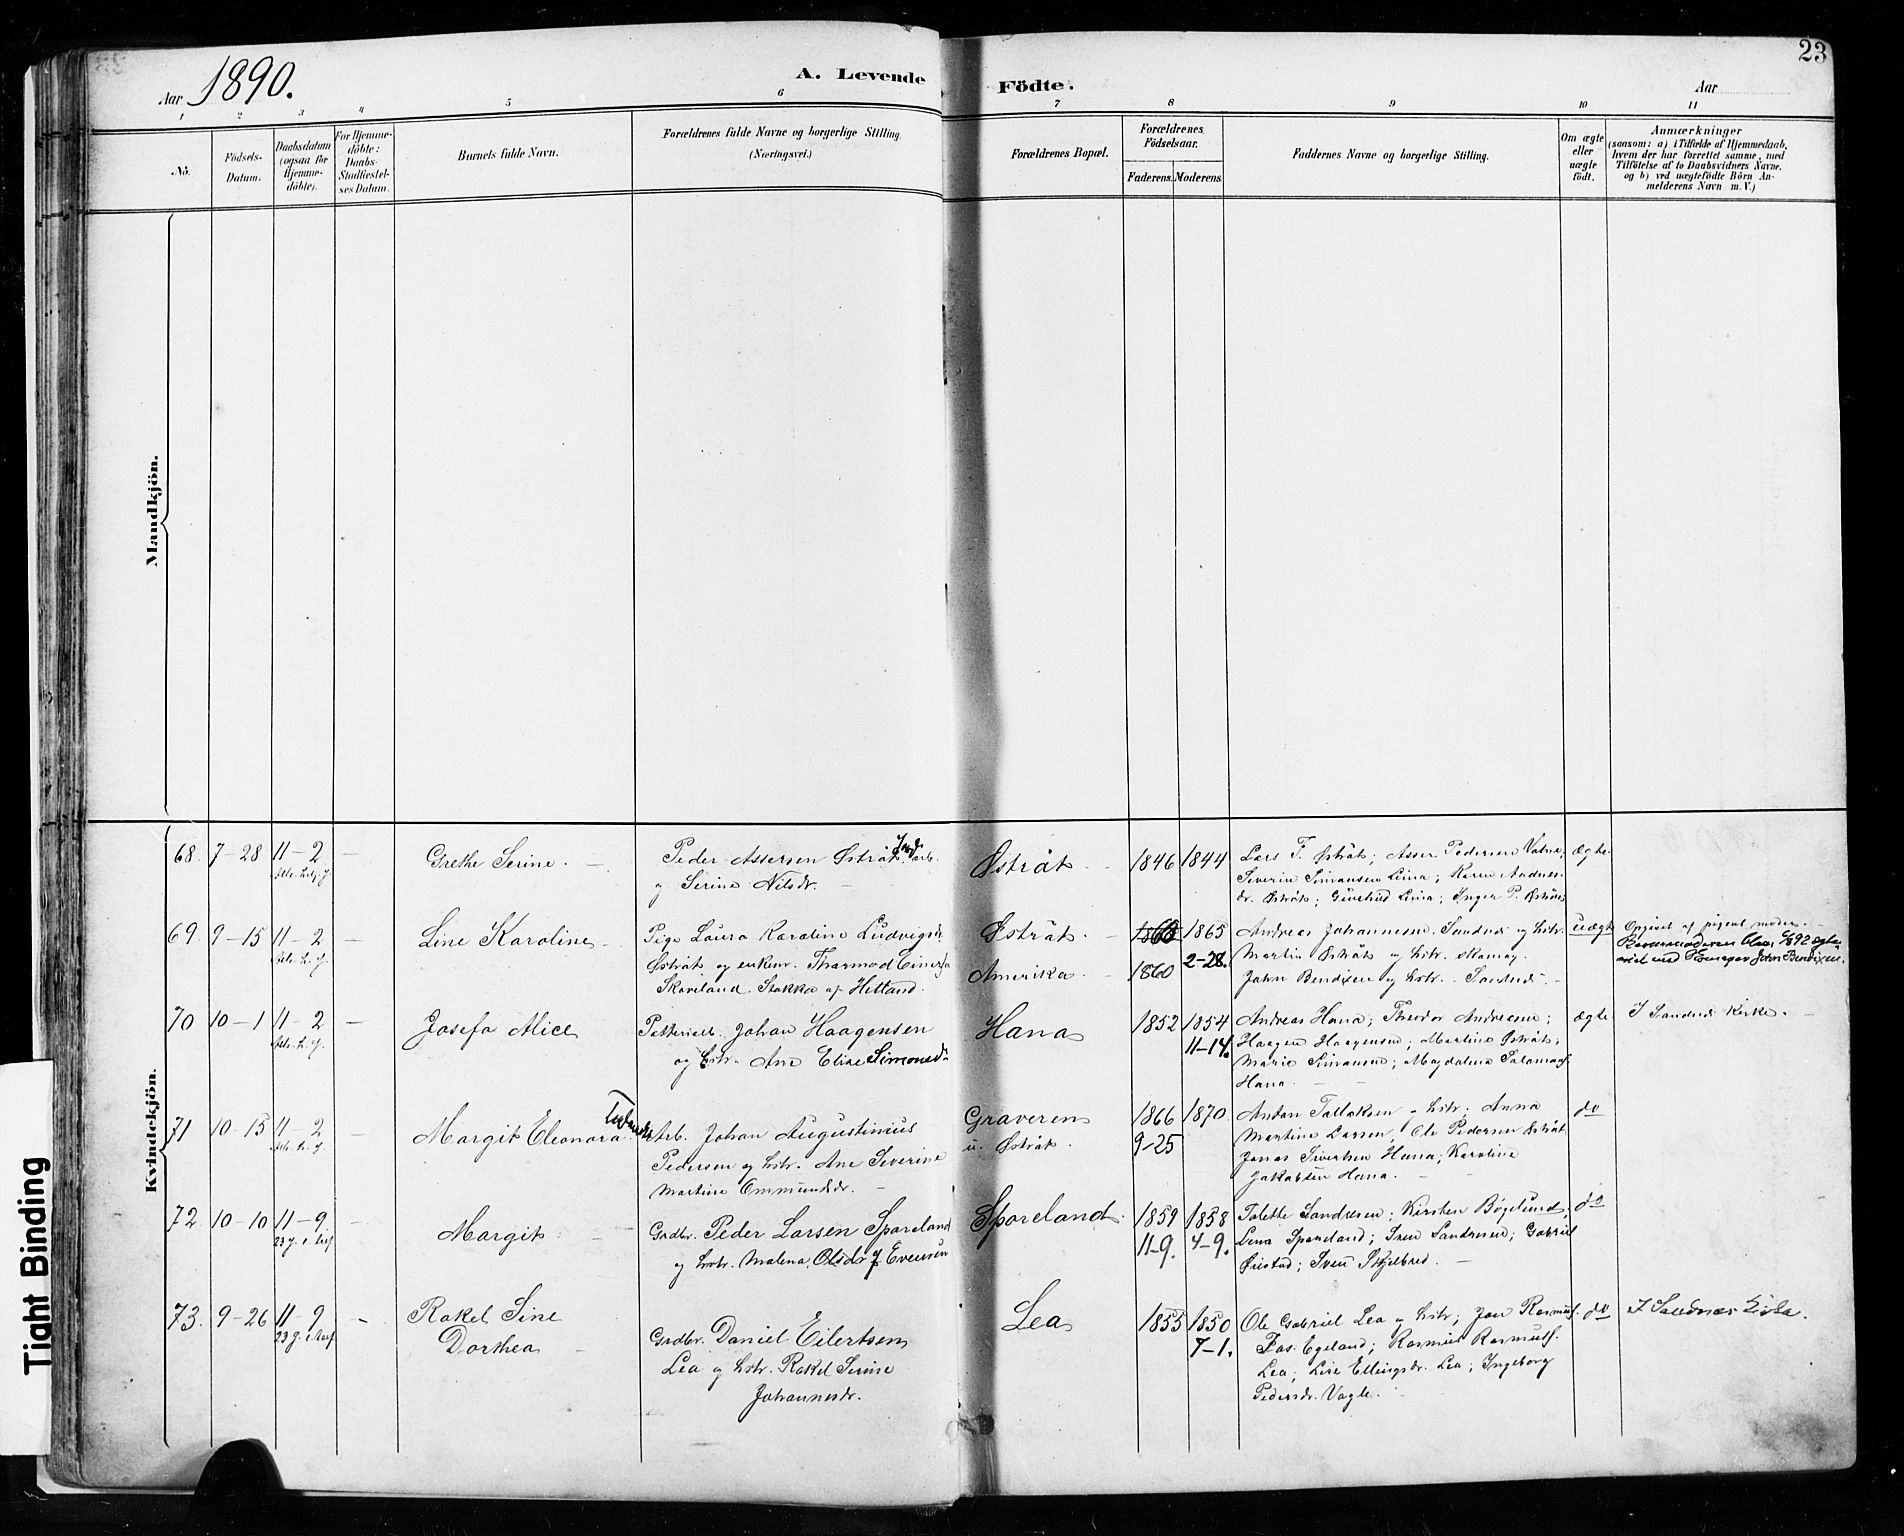 Aar 1890.
A. Levende Födte.
Aar
23
1 2 3 4 5 6 7 8 9 10 11
No.
Födsels-
Datum.
Daabsdatum
(ogsaa for
Hjemme-
döbte).
For Hjemme-
döbte:
Daabs-
Stadfæstel-
ses Datum.
Barnets fulde Navn.
Forældrenes fulde Navne og borgerlige Stilling.
(Næringsvei.)
Forældrenes Bopæl.
Forældrenes
Födselsaar.
Faderens. Moderens.
Faddernes Navne og borgerlige Stilling.
Om ægte
eller
uægte
födt.
Anmærkninger
(saasom: a) i Tilfælde af Hjemmedaab,
hvem der har forrettet samme, med
Tilföielse af to Daabsvidners Navne,
og b) ved uægtefödte Börn An-
melderens Navn m. V.)
Mandkjön.
Kvindekjön.
68. 7-28 11-2 —
Grethe Serine.
Peder Assersen Østråt Jordarb.
og Serine Nilsdr.
Østråt.
1846 1844
Lars T. Østråt; Asser Pedersen Vatne;
Severin Simonsen Lima; Karen Andreas-
dr. Østråt; Gunhild Lima; Inger P. Østråt
ægte
69. 9-15 11-2 —
Line Karoline
Pige Laura Karoline Ludvigsdr.
Østråt og enkem. Tharmod Einersen
Skaveland. Stokka af Hetland.
Østråt.
Amerika
1860 1865
2-28.
1860
Andreas Johannesen Sandnes og hstr.
Martin Østråt og hstr.
John Bendixen og hstr. Sandnes.
uægte
Opgivet af pigens moder.
Barnemoderen blev 6/892 ægte-
viet med John Bendixen.
70 10-1 11-2 —
Josefa Alice
Pottemaker. Johan Haagensen
og hstr. Ane Elise Simonsd.
Hana
1852 1854
11-14.
Andreas Hana; Theodor Andreasen;
Haagen Haagensen; Martine Østråt;
Marie Simonsen; Magdalena Salomons.
Hana.
ægte
I Sandnes Kirke.
71 10-15 11-2 —
Margit Eleonora
Arb. Johan Augustinius
Pedersen og hstr. Ane Severine
Martine Ommundsdr.
Graveren
u. Østråt.
1866 1870
9-25
Andan Tallaksen og hstr; Anna
Martine Larsen, Ole Pedersen Østråt
Jonas Sivertsen Hana; Karoline
Jakobsen Hana.
do
72 10-10 11-9 —
23 g. i. tref
Margit
Grdbr. Peder Larsen Spareland
og hstr. Malena Olsdr. f. Evensen
Spareland.
1859 1858
11-9. 4-9.
Talette Sandresen; Kirsten Bøgelund,
Lena Spareland; Sven Sandresen; Gabriel
Øistad; Sven Skjelbred.
do
73. 9-26 11-9 -
23 g. i. tref
Rakel Sine
Dorthea
Grdbr. Daniel Eilertsen
Lea og hstr. Rakel Serine
Johannesdr.
Lea
1855 1850
7-1.
Ole Gabriel Lea og hstr; Jon Rasmus.
Fas. Egeland; Rasmus Rasmuss.
Lea; Lise Ellingsdr. Lea; Ingeborg
Pedersdr. Vagle.
do
I Sandnæs Kirke.
Tight Binding